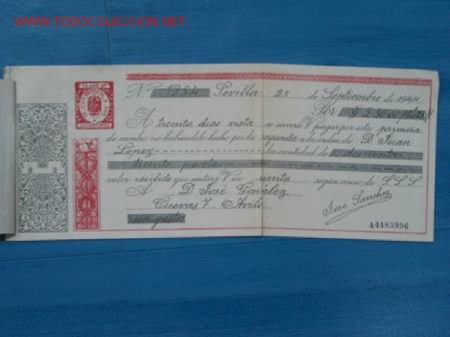 www.TODOCOLECCION.NET
Nº 1254 Sevilla 25 de Septiembre de 194
Por # 230 pesetas #
A treinta dias vista se servirá V. pagar por esta primera
de cambio no habiéndolo hecho por la segunda a la orden de D. Juan
López la cantidad de doscientas
treinta pesetas
valor recibido que sentará V. en cuenta según aviso de S.S.S.
A D. José González
Cuevas, 7. Avila
José Sanchez
A4485996